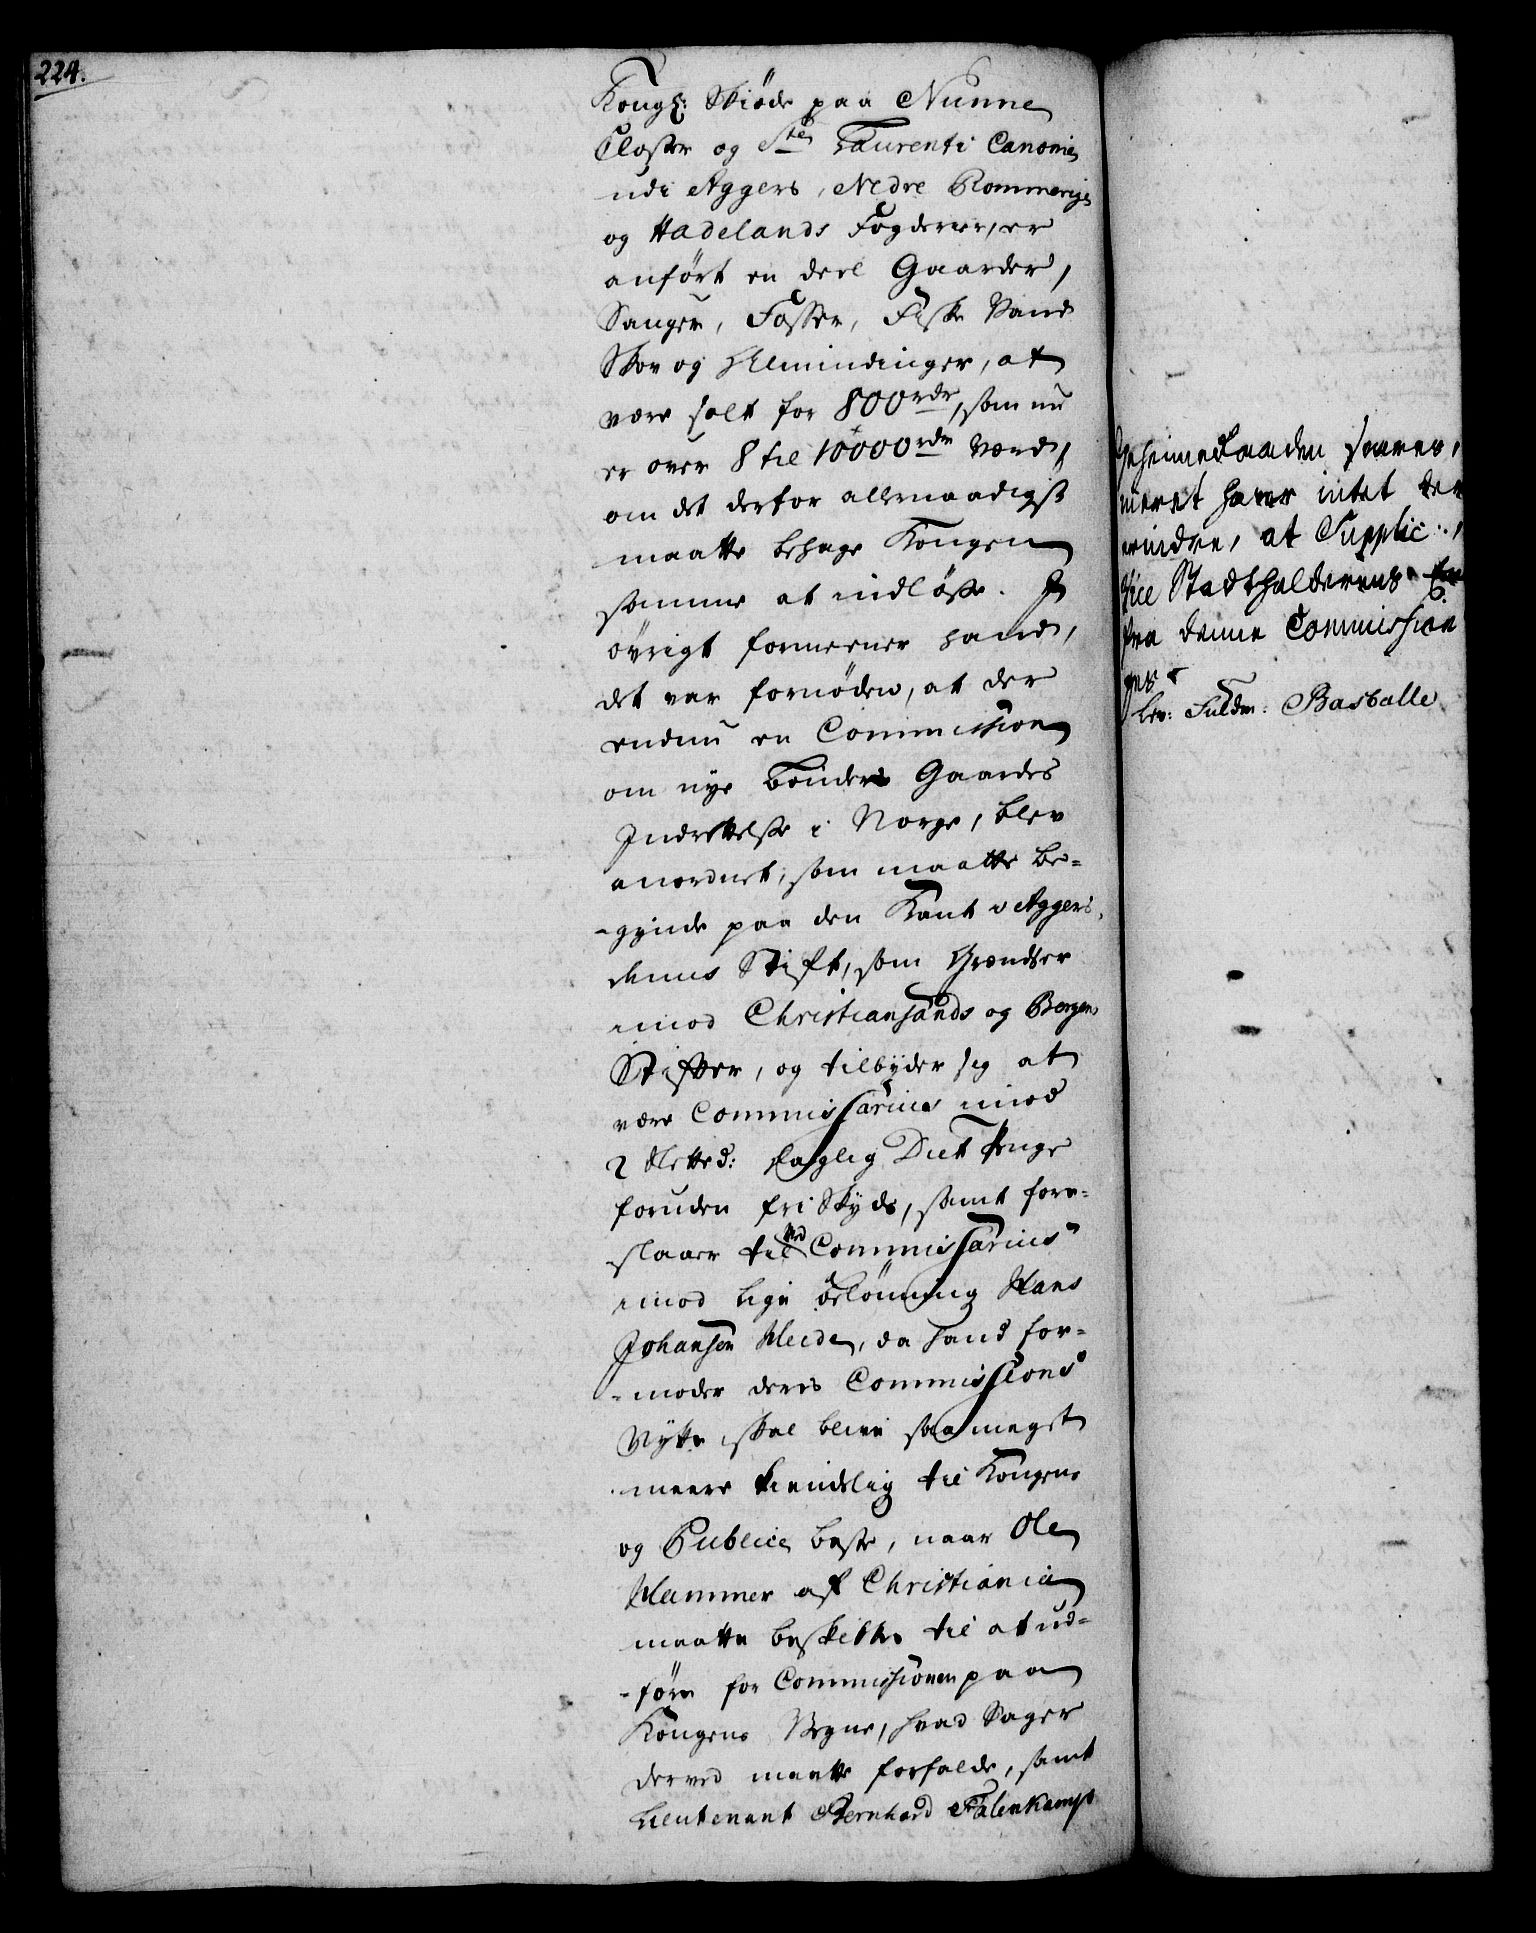 224.
Kongl: Skiöde paa Nunne
Closter og Ste Laurenti Canonie
udi Aggers, Nedre Rommerige
og Hadelands Fogderier, er
anfört en deel Gaarder,
Sauger, Fosser, Fiske Vand
Skov og Allmindinger, at
være solt for 800 rdr, som nu
er over 8 til 10000 rdr værd,
om det derfor allernaadigst
maatte behage Kongen
samme at indlöse. J
övrigt formeener hand,
det var fornöden, at der
endnu en Commission
om nye Bönder Gaardes
Jndrettelse i Norge, blev
anordnet, som maatte be-
-gynde paa den Kant i Aggers-
huus Stift, som Grændser
imod Christiansands og Bergens
Stifter, og tilbyder sig at
være Commissarius imod
2 Sletted: daglig Diet Penge
foruden fri Skyds, samt fore-
slaaer til Med Commissarius
imod lige belönning Hans
Johansen Heide, da hand for-
-moder deris Commissions
Nytte skal blive saa meget
meere kiendelig til Kongens
og Publici beste, naar Ole
Hammer af Christiania
maatte beskikkes til at ud-
-före for Commissionen paa
Kongens Vegne, hvad Sager
derved maatte forfalde, samt
Lieutenant Bernhard Falenkamp
Geheimeraaden svarer,
meret haver intet der
erindre, at Supplic:,
Vice Stadtholderens
fra denne Commission
ges
Lev: Fuldm: Basballe